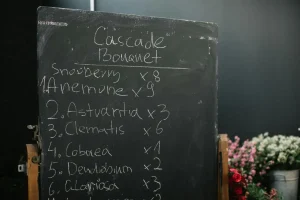 Cascade
Bouquet
Snowberry x 8
1. Anemone x 9
2. Astrantia x 3
3. Clematis x 6
4. Cobaea x 1
5. x 2
6. x 3